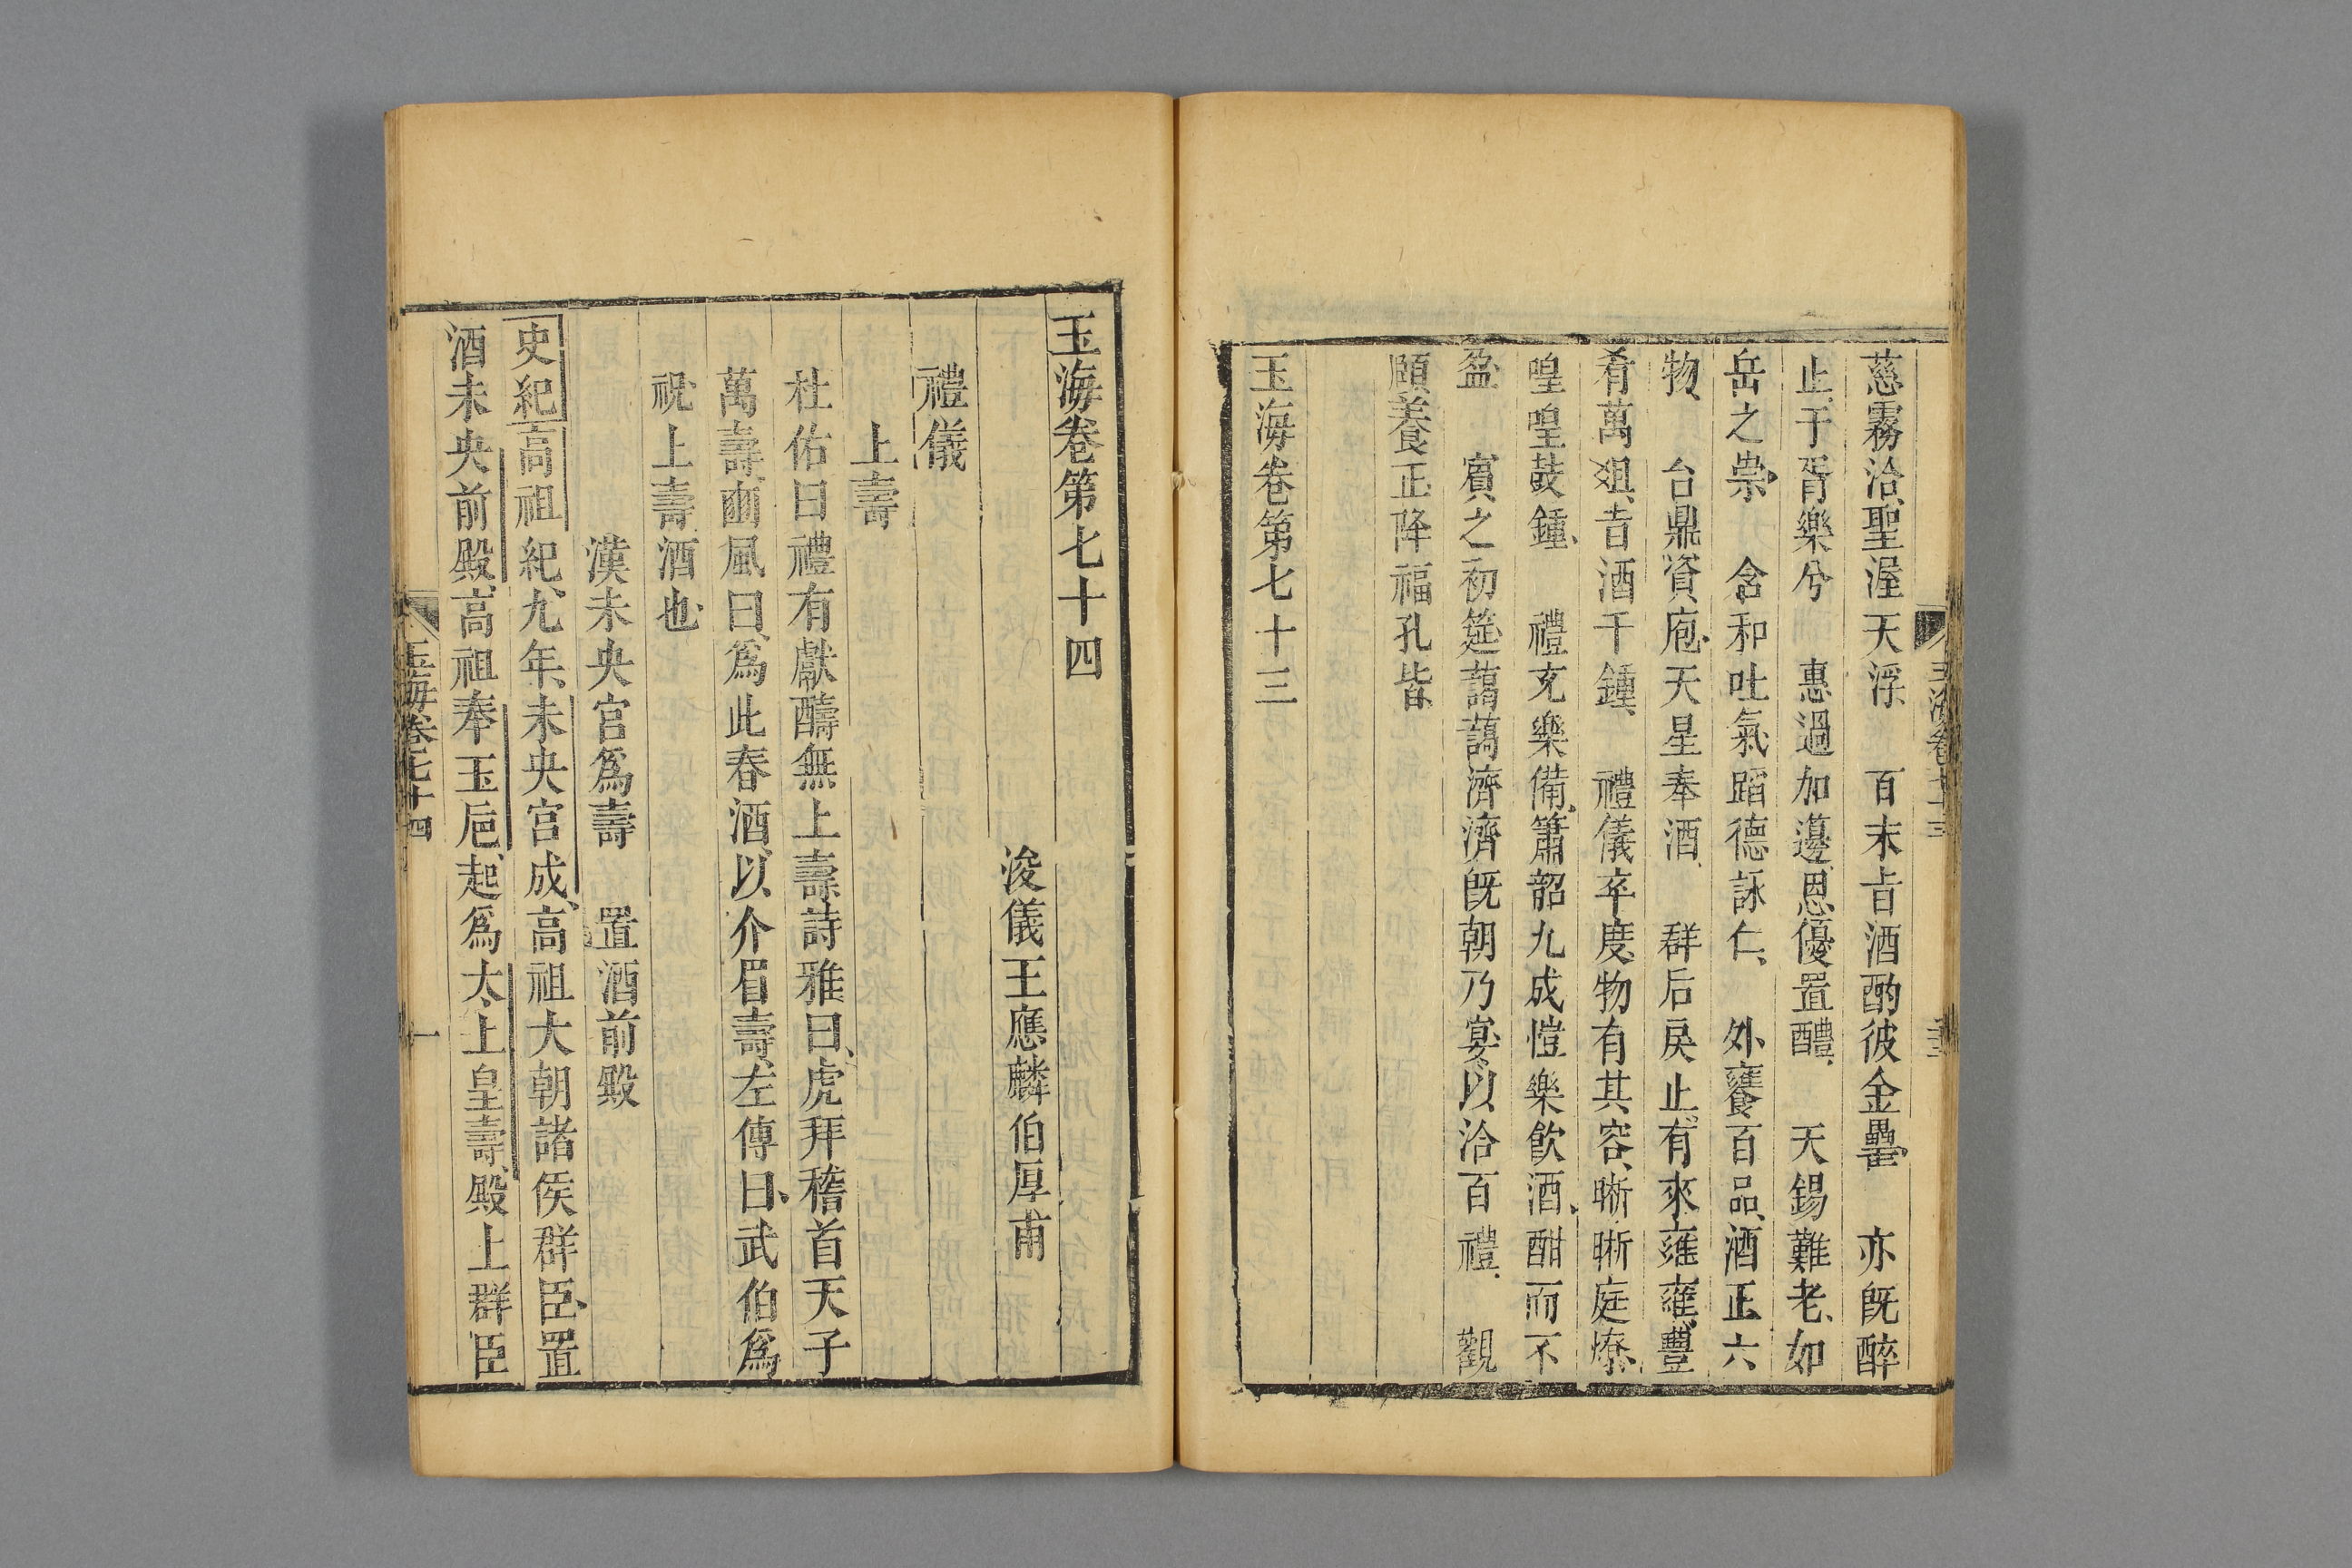 慈霧洽聖渥天浮　百末旨酒酌彼金罍　亦既醉
止于胥樂兮　惠過加籩恩優置醴　天錫難老如
岳之崇　含和吐氣蹈德詠仁　外饔百品酒正六
物　台鼎資庖天星奉酒　群后戾止有來雍雍豐
肴萬俎旨酒千鍾　禮儀卒度物有其容晰晰庭燎
喤喤鼓鍾　禮充樂備簫韶九成愷樂飲酒酣而不
盈　賓之初筵藹藹濟濟既朝乃宴以洽百禮　觀
頤養正降福孔皆
玉海卷第七十三
玉海卷第七十四
浚儀王應麟伯厚甫
禮儀
上壽
杜佑曰禮有獻醻無上壽詩雅曰虎拜稽首天子
萬壽豳風曰爲此春酒以介眉壽左傳曰武伯爲
祝上壽酒也
漢未央宮爲壽　置酒前殿
史紀高祖紀九年未央宮成高祖大朝諸侯群臣置
酒未央前殿高祖奉玉卮起爲太上皇壽殿上群臣
玉海卷七十四　一